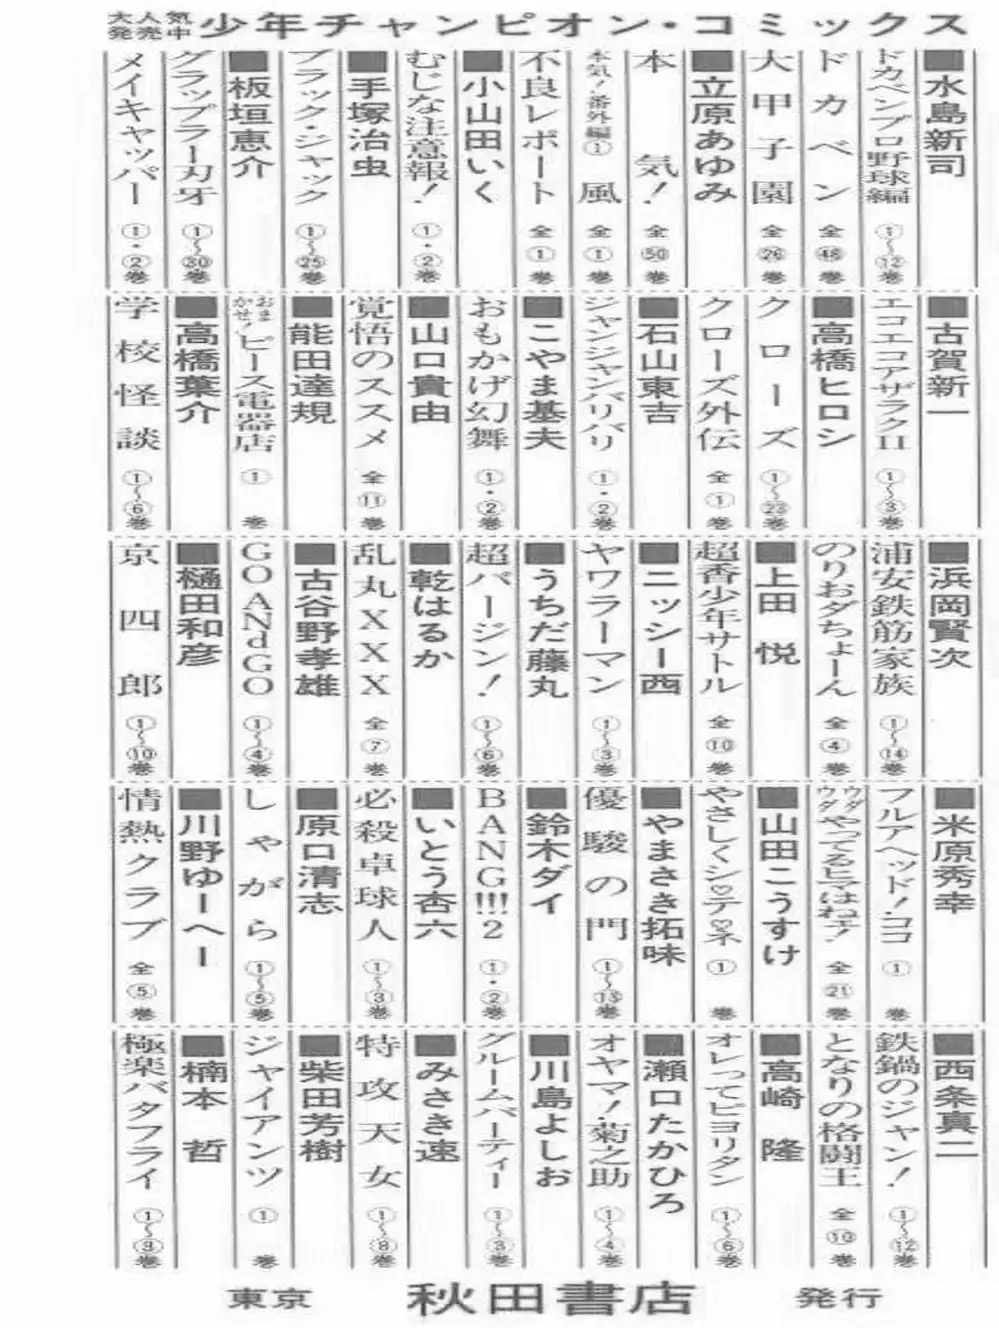 大人気発売中 少年チャンピオン・コミックス
■水島新司
ドカベンプロ野球編 ①〜⑫巻
ドカベン 全㊽巻
大甲子園 全㉖巻
■立原あゆみ
本気! 全㊿巻
本気!番外編① 風 全①巻
不良レポート 全①巻
■小山田いく
むじな注意報! ①・②巻
■手塚治虫
ブラック・ジャック ①〜㉕巻
■板垣恵介
グラップラー刃牙 ①〜㉚巻
メイキャッパー ①・②巻
■古賀新一
エコエコアザラクⅡ ①〜③巻
■高橋ヒロシ
クローズ ①〜㉓巻
クローズ外伝 全①巻
■石山東吉
ジャンジャンバリバリ ①・②巻
■こやま基夫
おもかげ幻舞 ①・②巻
■山口貴由
覚悟のススメ 全⑪巻
■能田達規
おまかせ!ピース電器店 ①巻
■高橋葉介
学校怪談 ①〜⑥巻
■浜岡賢次
浦安鉄筋家族 ①〜⑭巻
のりおダちょーん 全④巻
■上田悦
超香少年サトル 全⑩巻
■ニッシー西
ヤワラーマン ①〜③巻
■うちだ藤丸
超バージン! ①〜⑥巻
■乾はるか
乱丸XXX 全⑦巻
■古谷野孝雄
GOANdGO ①〜④巻
■樋田和彦
京四郎 ①〜⑩巻
■米原秀幸
フルアヘッド!ココ ①巻
ウダウダやってるヒマはねェ! 全㉑巻
■山田こうすけ
やさしくシ♡テ♡ネ ①巻
■やまさき拓味
優駿の門 ①〜⑬巻
■鈴木ダイ
BANG!!!2 ①・②巻
■いとう杏六
必殺卓球人 ①〜③巻
■原口清志
しゃがら ①〜⑤巻
■川野ゆーへー
情熱クラブ 全⑤巻
■西条真二
鉄鍋のジャン! ①〜⑫巻
となりの格闘王 全⑩巻
■高崎隆
オレってピヨリタン ①〜⑥巻
■瀬口たかひろ
オヤマ!菊之助 ①〜④巻
■川島よしお
グルームパーティー ①〜③巻
■みさき速
特攻天女 ①〜⑧巻
■柴田芳樹
ジャイアンツ ①巻
■楠本哲
極楽バタフライ ①〜③巻
東京 秋田書店 発行